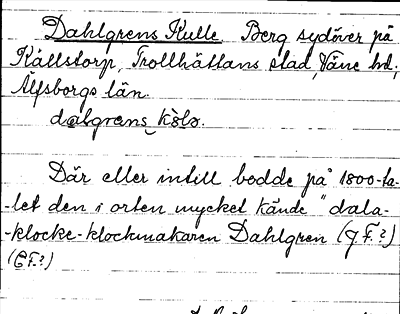 Dahlgrens Kulle Berg sydöver på
Källstorp, Trollhättans stad, Väne hd,
Älfsborgs län.
dalgrens kòlə.
Där eller intill bodde på 1800-ta-
-let den i orten mycket kände "dala-
-klocke-klockmakaren Dahlgren (J. F.?)
(C F.?)